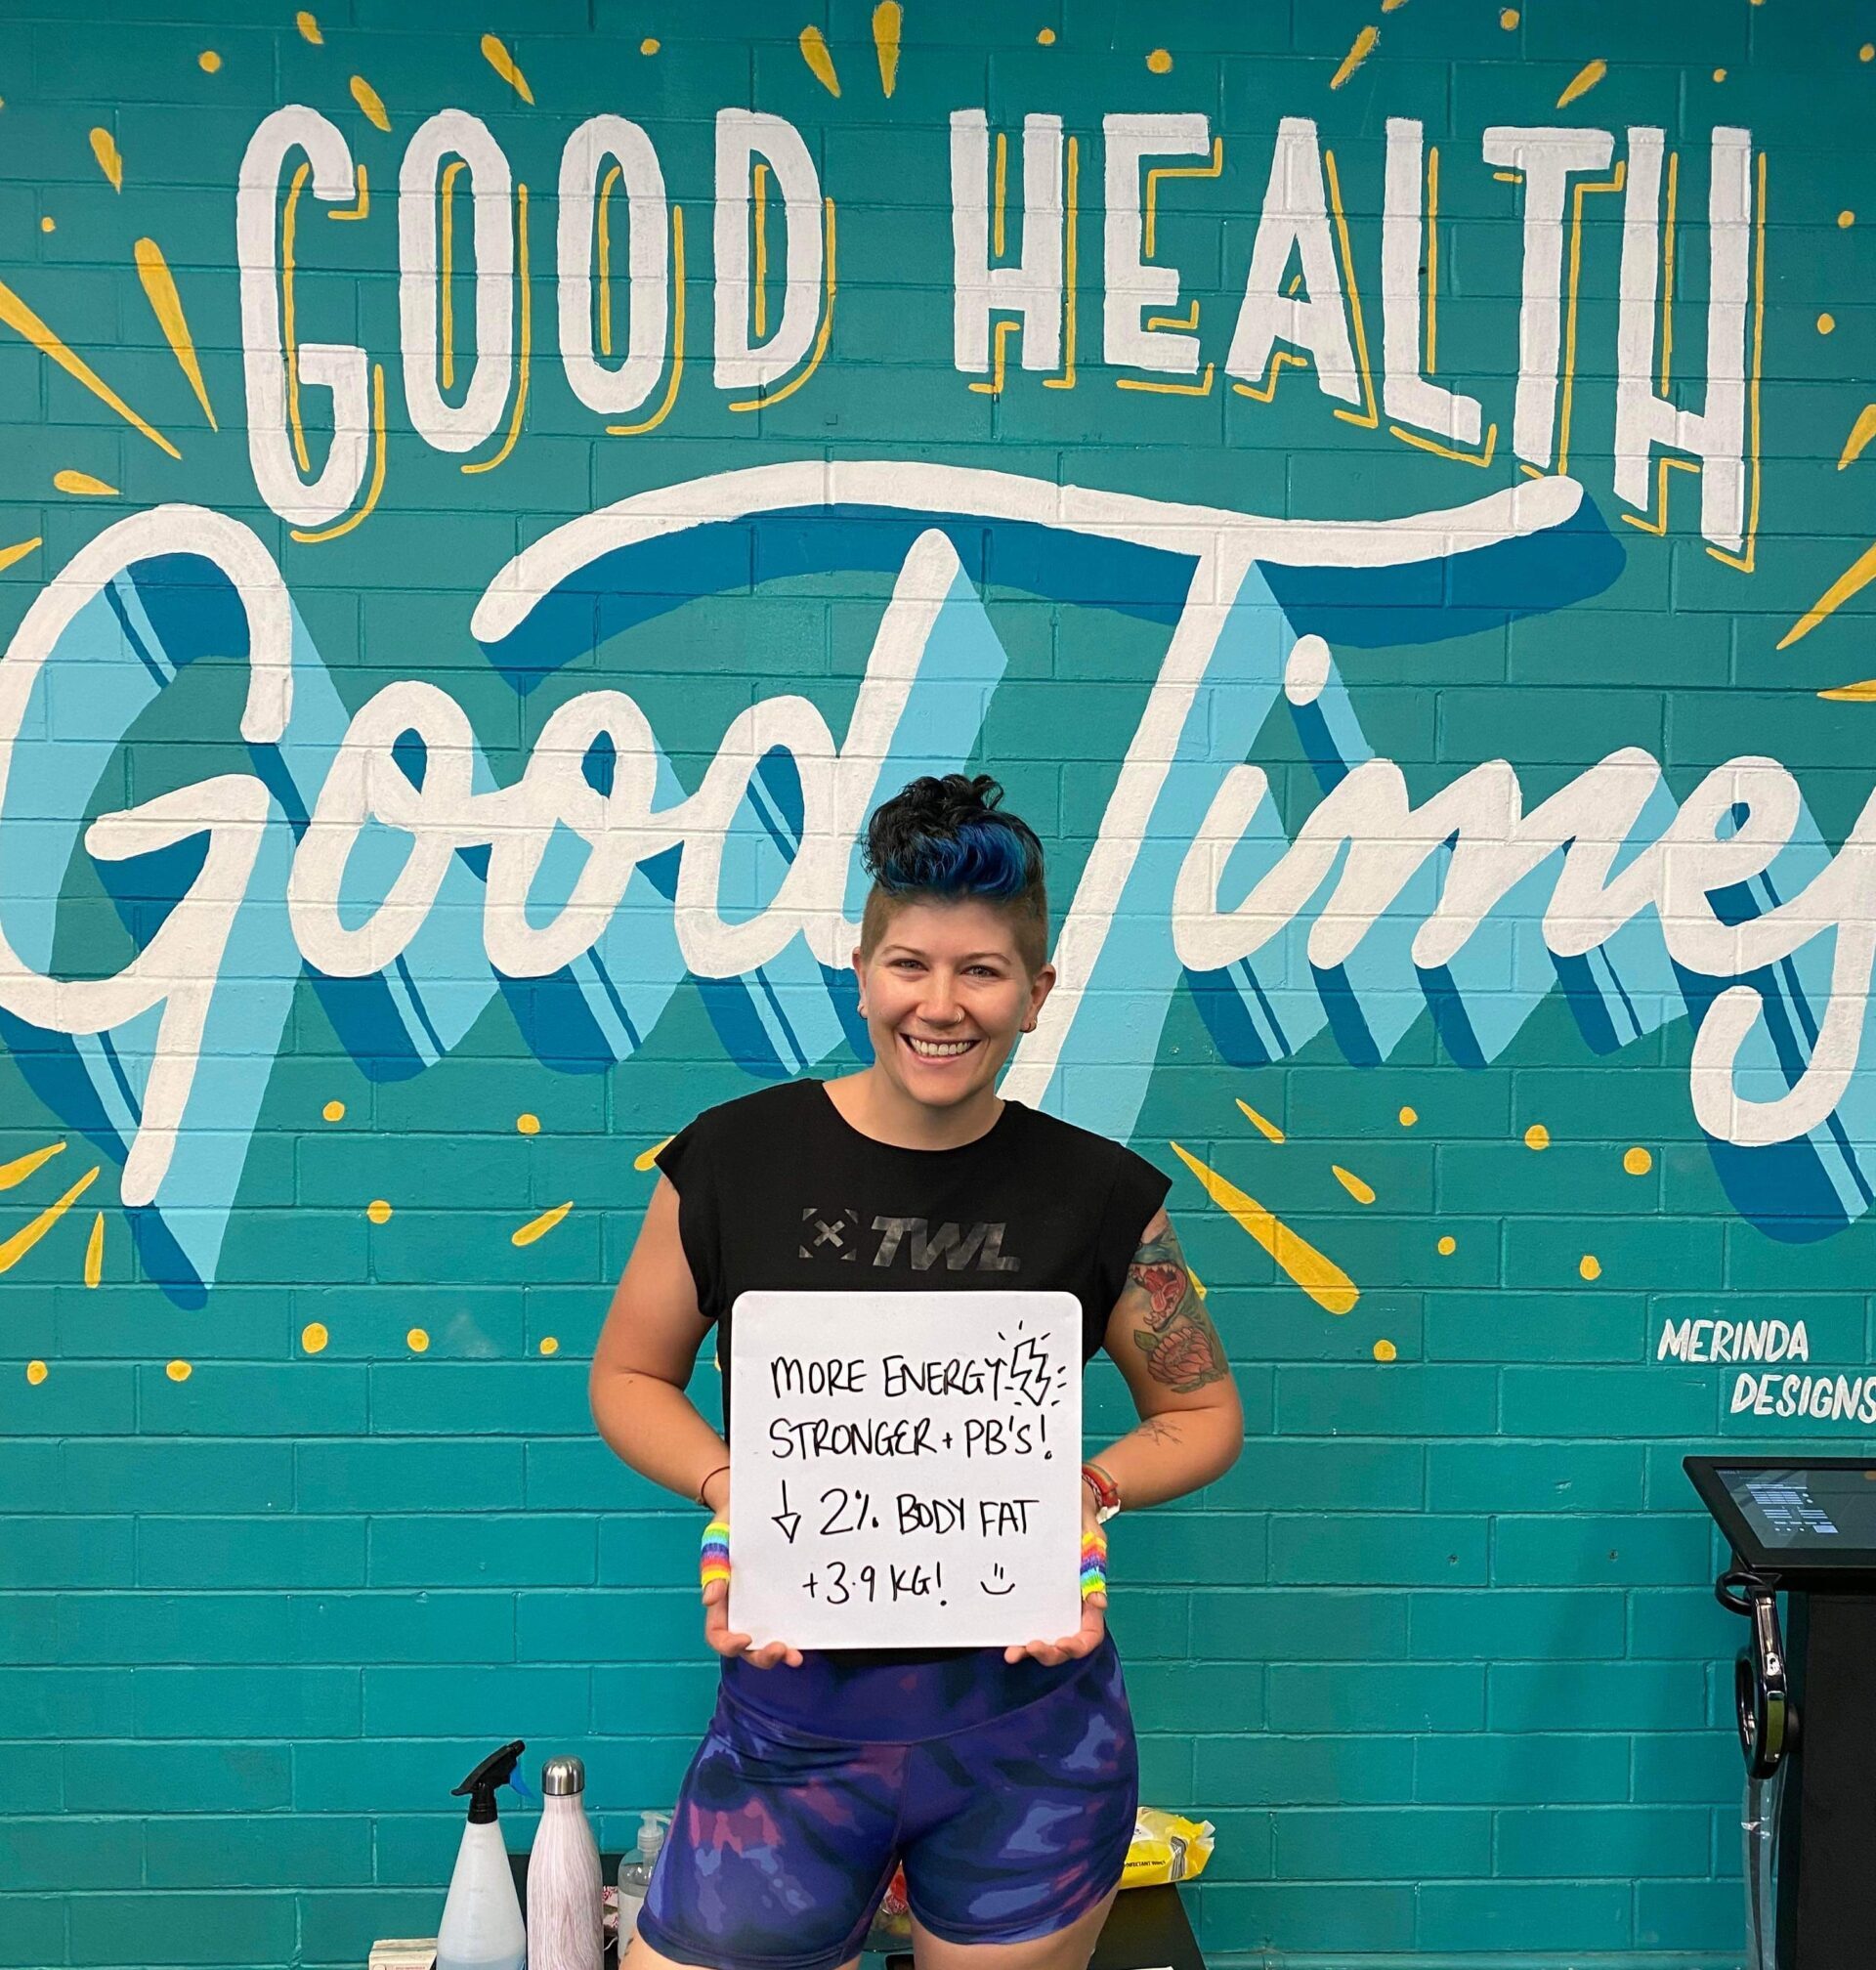 GOOD HEALTH
Good Times
TWL
MORE ENERGY
STRONGER + PB'S!
↓ 2% BODY FAT
+3.9 KG!
MERINDA
DESIGNS